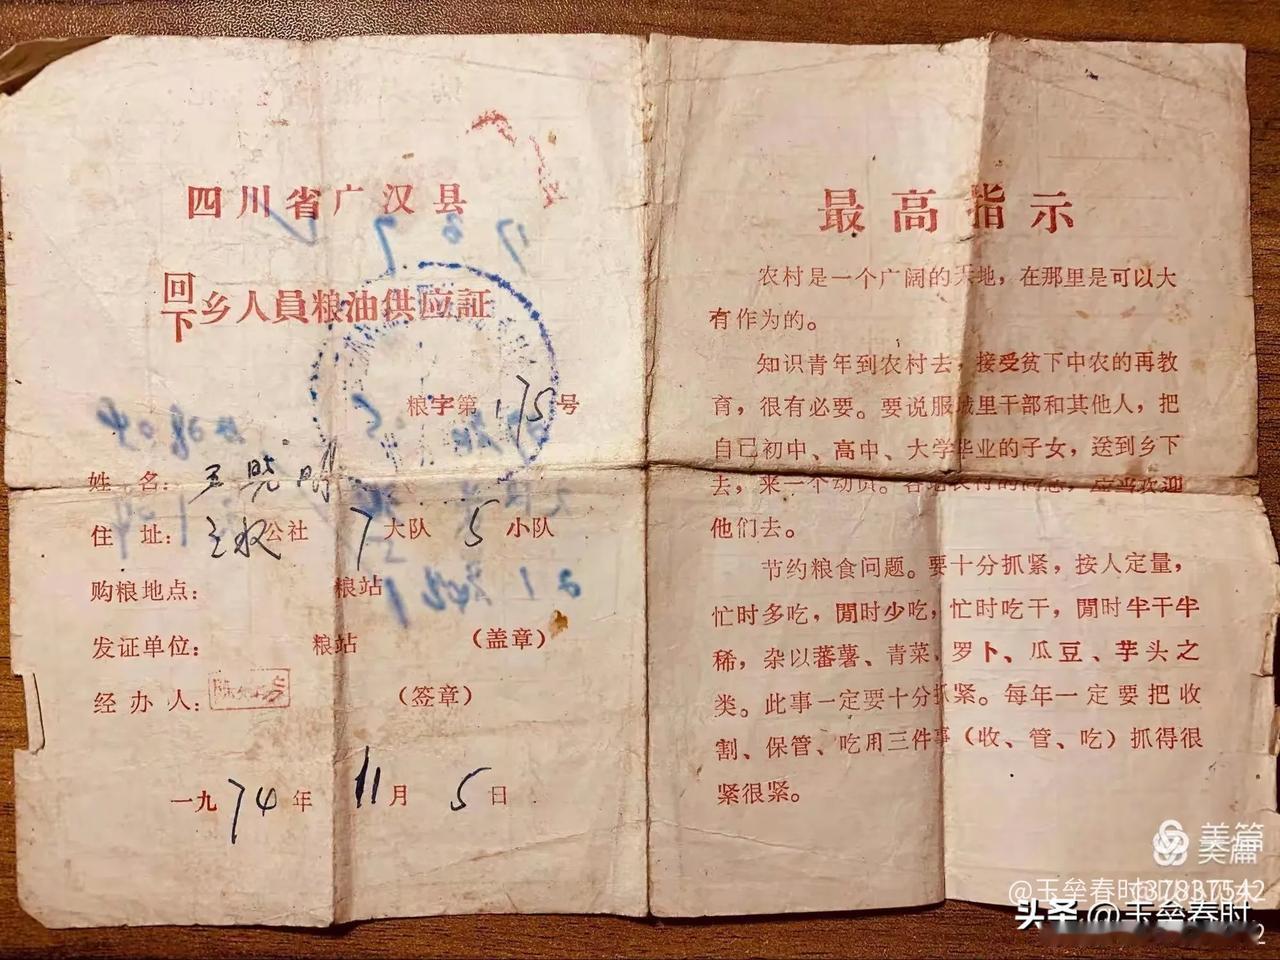 四川省广汉县
回下乡人員粮油供应証
粮字第175号
姓名：王晓明
住址：公社7大队5小队
购粮地点：粮站
发证单位：粮站（盖章）
经办人：（签章）
一九74年11月5日
最高指示
农村是一个广阔的天地，在那里是可以大
有作为的。
知识青年到农村去，接受贫下中农的再教
育，很有必要。要说服城里干部和其他人，把
自己初中、高中、大学毕业的子女，送到乡下
去，来一个动员。各地农村的同志，应当欢迎
他们去。
节约粮食问题。要十分抓紧，按人定量，
忙时多吃，閒时少吃，忙时吃干，閒时半干半
稀，杂以蕃薯、青菜、罗卜、瓜豆、芋头之
类。此事一定要十分抓紧。每年一定要把收
割、保管、吃用三件事（收、管、吃）抓得很
紧很紧。
美篇
@玉垒春时37837542
头条@玉垒春时